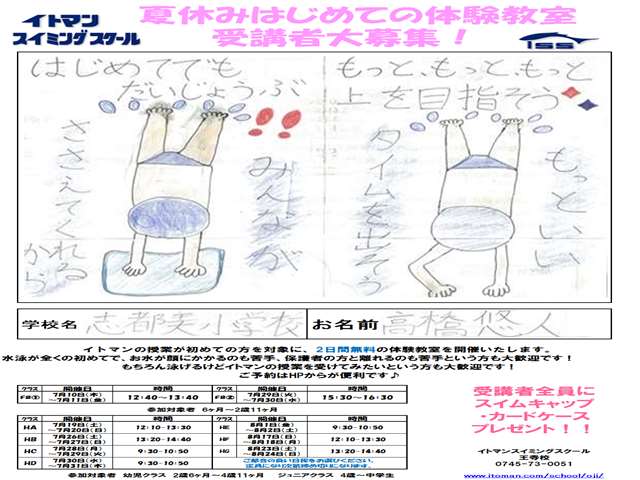 イトマン
スイミングスクール
夏休みはじめての体験教室
受講者大募集！
ISS
はじめてでも
だいじょうぶ
!!
みんなが
ささえてくれる
から
もっと、もっと、もっと
上を目指そう
もっといい
タイムを出そう
学校名 志都美小学校
お名前 高橋悠人
イトマンの授業が初めての方を対象に、2日間無料の体験教室を開催いたします。
水泳が全くの初めてで、お水が顔にかかるのも苦手、保護者の方と離れるのも苦手という方も大歓迎です！
もちろん泳げるけどイトマンの授業を受けてみたいという方も大歓迎です！
ご予約はHPからが便利です♪
クラス 開催日 時間 クラス 開催日 時間
7月10日(木)
～7月11日(金) 12:40～13:40 7月29日(火)
～7月30日(水) 15:30～16:30
参加対象者 6ヶ月～2歳11ヶ月
クラス 開催日 時間 クラス 開催日 時間
HA 7月19日(土)
～7月20日(日) 12:10-13:30 HE 8月1日(金)
～8月2日(土) 9:30-10:50
HB 7月26日(土)
～7月27日(日) 13:20-14:40 HF 8月17日(日)
～8月18日(月) 12:10-13:30
HC 7月28日(月)
～7月29日(火) 9:30-10:50 HG 8月23日(土)
～8月24日(日) 13:20-14:40
HD 7月30日(水)
～7月31日(木) 9:30-10:50 ご都合の良い日程をお選びください。
定員になり次第締め切りになります。
参加対象者 幼児クラス 2歳6ヶ月～4歳11ヶ月 ジュニアクラス 4歳～中学生
受講者全員に
スイムキャップ
・カードケース
プレゼント！！
イトマンスイミングスクール
王寺校
0745-73-0051
www.itoman.com/school/oji/